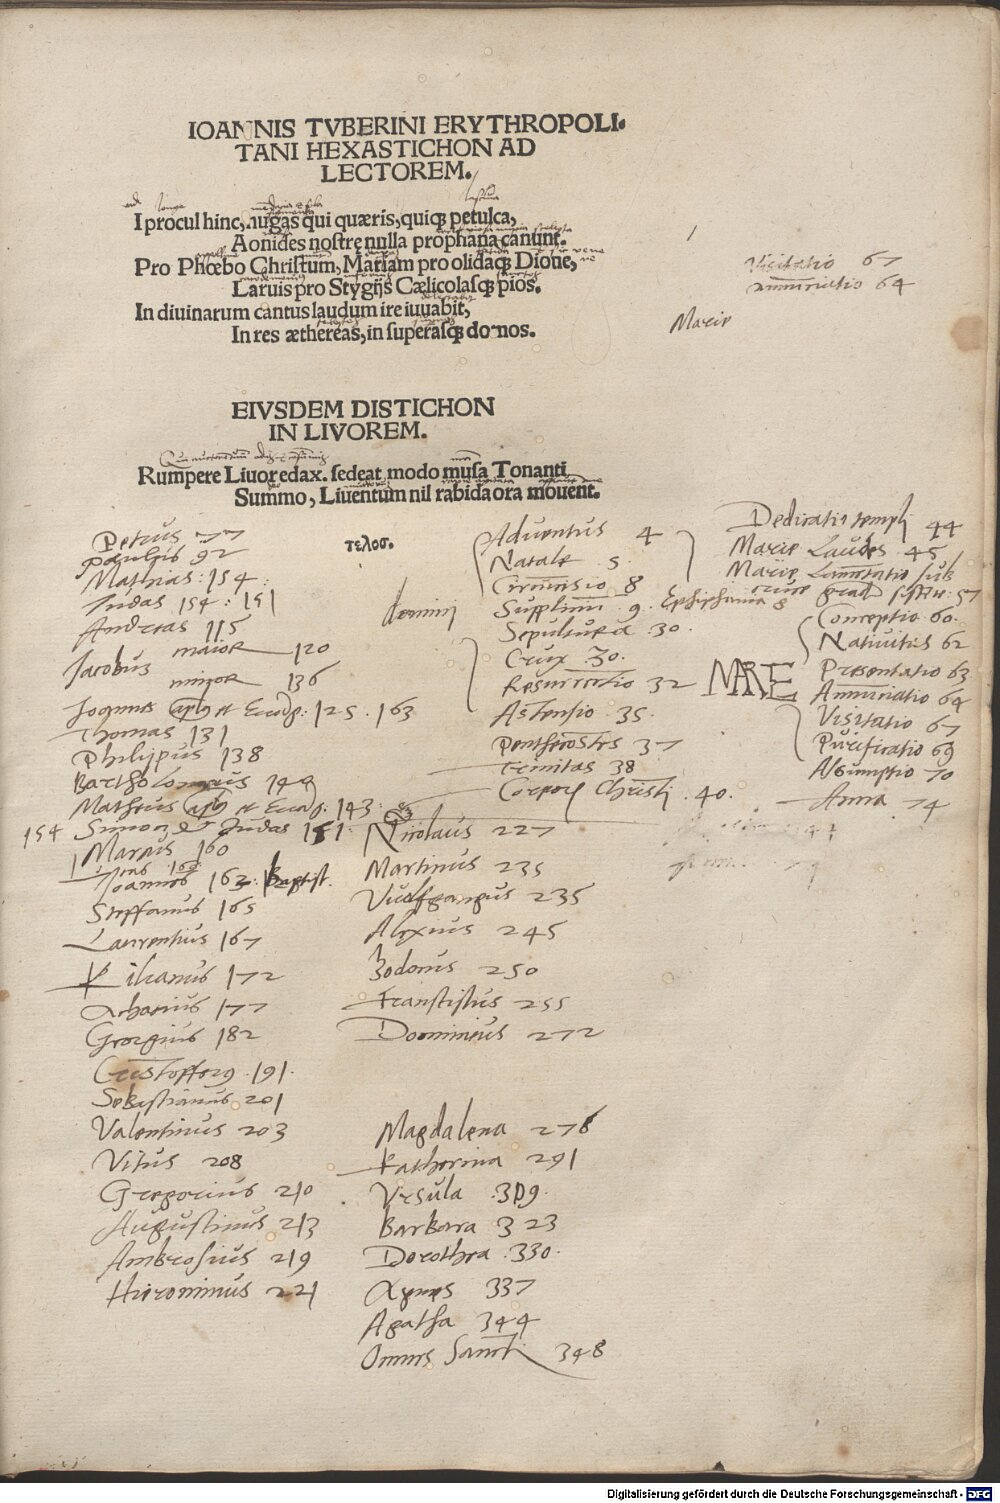 IOANNIS TVBERINI ERYTHROPOLI-
TANI HEXASTICHON AD
LECTOREM.
I procul hinc, nugas qui quæris, quiqꝫ petulca,
Aonides nostrę nulla prophana canunt.
Pro Phœbo Christum, Mariam pro olidaqꝫ Dione,
Laruis pro Stygijs Cælicolasqꝫ pios.
In diuinarum cantus laudum ire iuuabit,
In res æthereas, in superasqꝫ domos.
Visitatio 67
annunciatio 64
Marie
EIVSDEM DISTICHON
IN LIVOREM.
Rumpere Liuor edax. sedeat modo musa Tonanti
Summo, Liuentum nil rabida ora mouent.
τελοσ.
Petrus 77
paulus 92
Mathias: 154
Iudas 154: 151
Andreas 115
Iacobus
maior 120
minor 136
Ioannes et 125. 163
Thomas 131
Philippus 138
Bartholomeus 149
Matheus et 143
154 Simon et Iudas 151
Marcus 160
Ioannes 163 baptist.
Steffanus 165
Laurentius 167
Kilianus 172
Acharius 177
Georgius 182
Cristofferꝰ 191
Sebastianus 201
Valentinus 203
Vitus 208
Gregorius 210
Augustinus 213
Ambrosius 219
Hieronimus 221
domini
Aduentus 4
Natale 5
Circumcisio 8
9. Ephiphania 8
Sepultura 30
Crux 30.
Resurrectio 32
Ascensio 35
Penthecostes 37
Trinitas 38
Corporis Christi 40.
Nicolaus 227
Martinus 235
Vuolfgangus 235
Alexius 245
Bodonus 250
Franciscus 255
Dominicus 272
Magdalena 276
Katherina 291
Vrsula 309
Barbara 323
Dorothea 330
Agnes 337
Agatha 344
Omnes Sancti 348
Dedicatio templi 44
Marie Laudes 45
Marie Lamentatio sub
cruce 57
MARIE
Conceptio 60
Natiuitas 62
Presentatio 63
Annunciatio 64
Visitatio 67
Purificatio 69
Assumptio 70
Anna 74
Digitalisierung gefördert durch die Deutsche Forschungsgemeinschaft - DFG